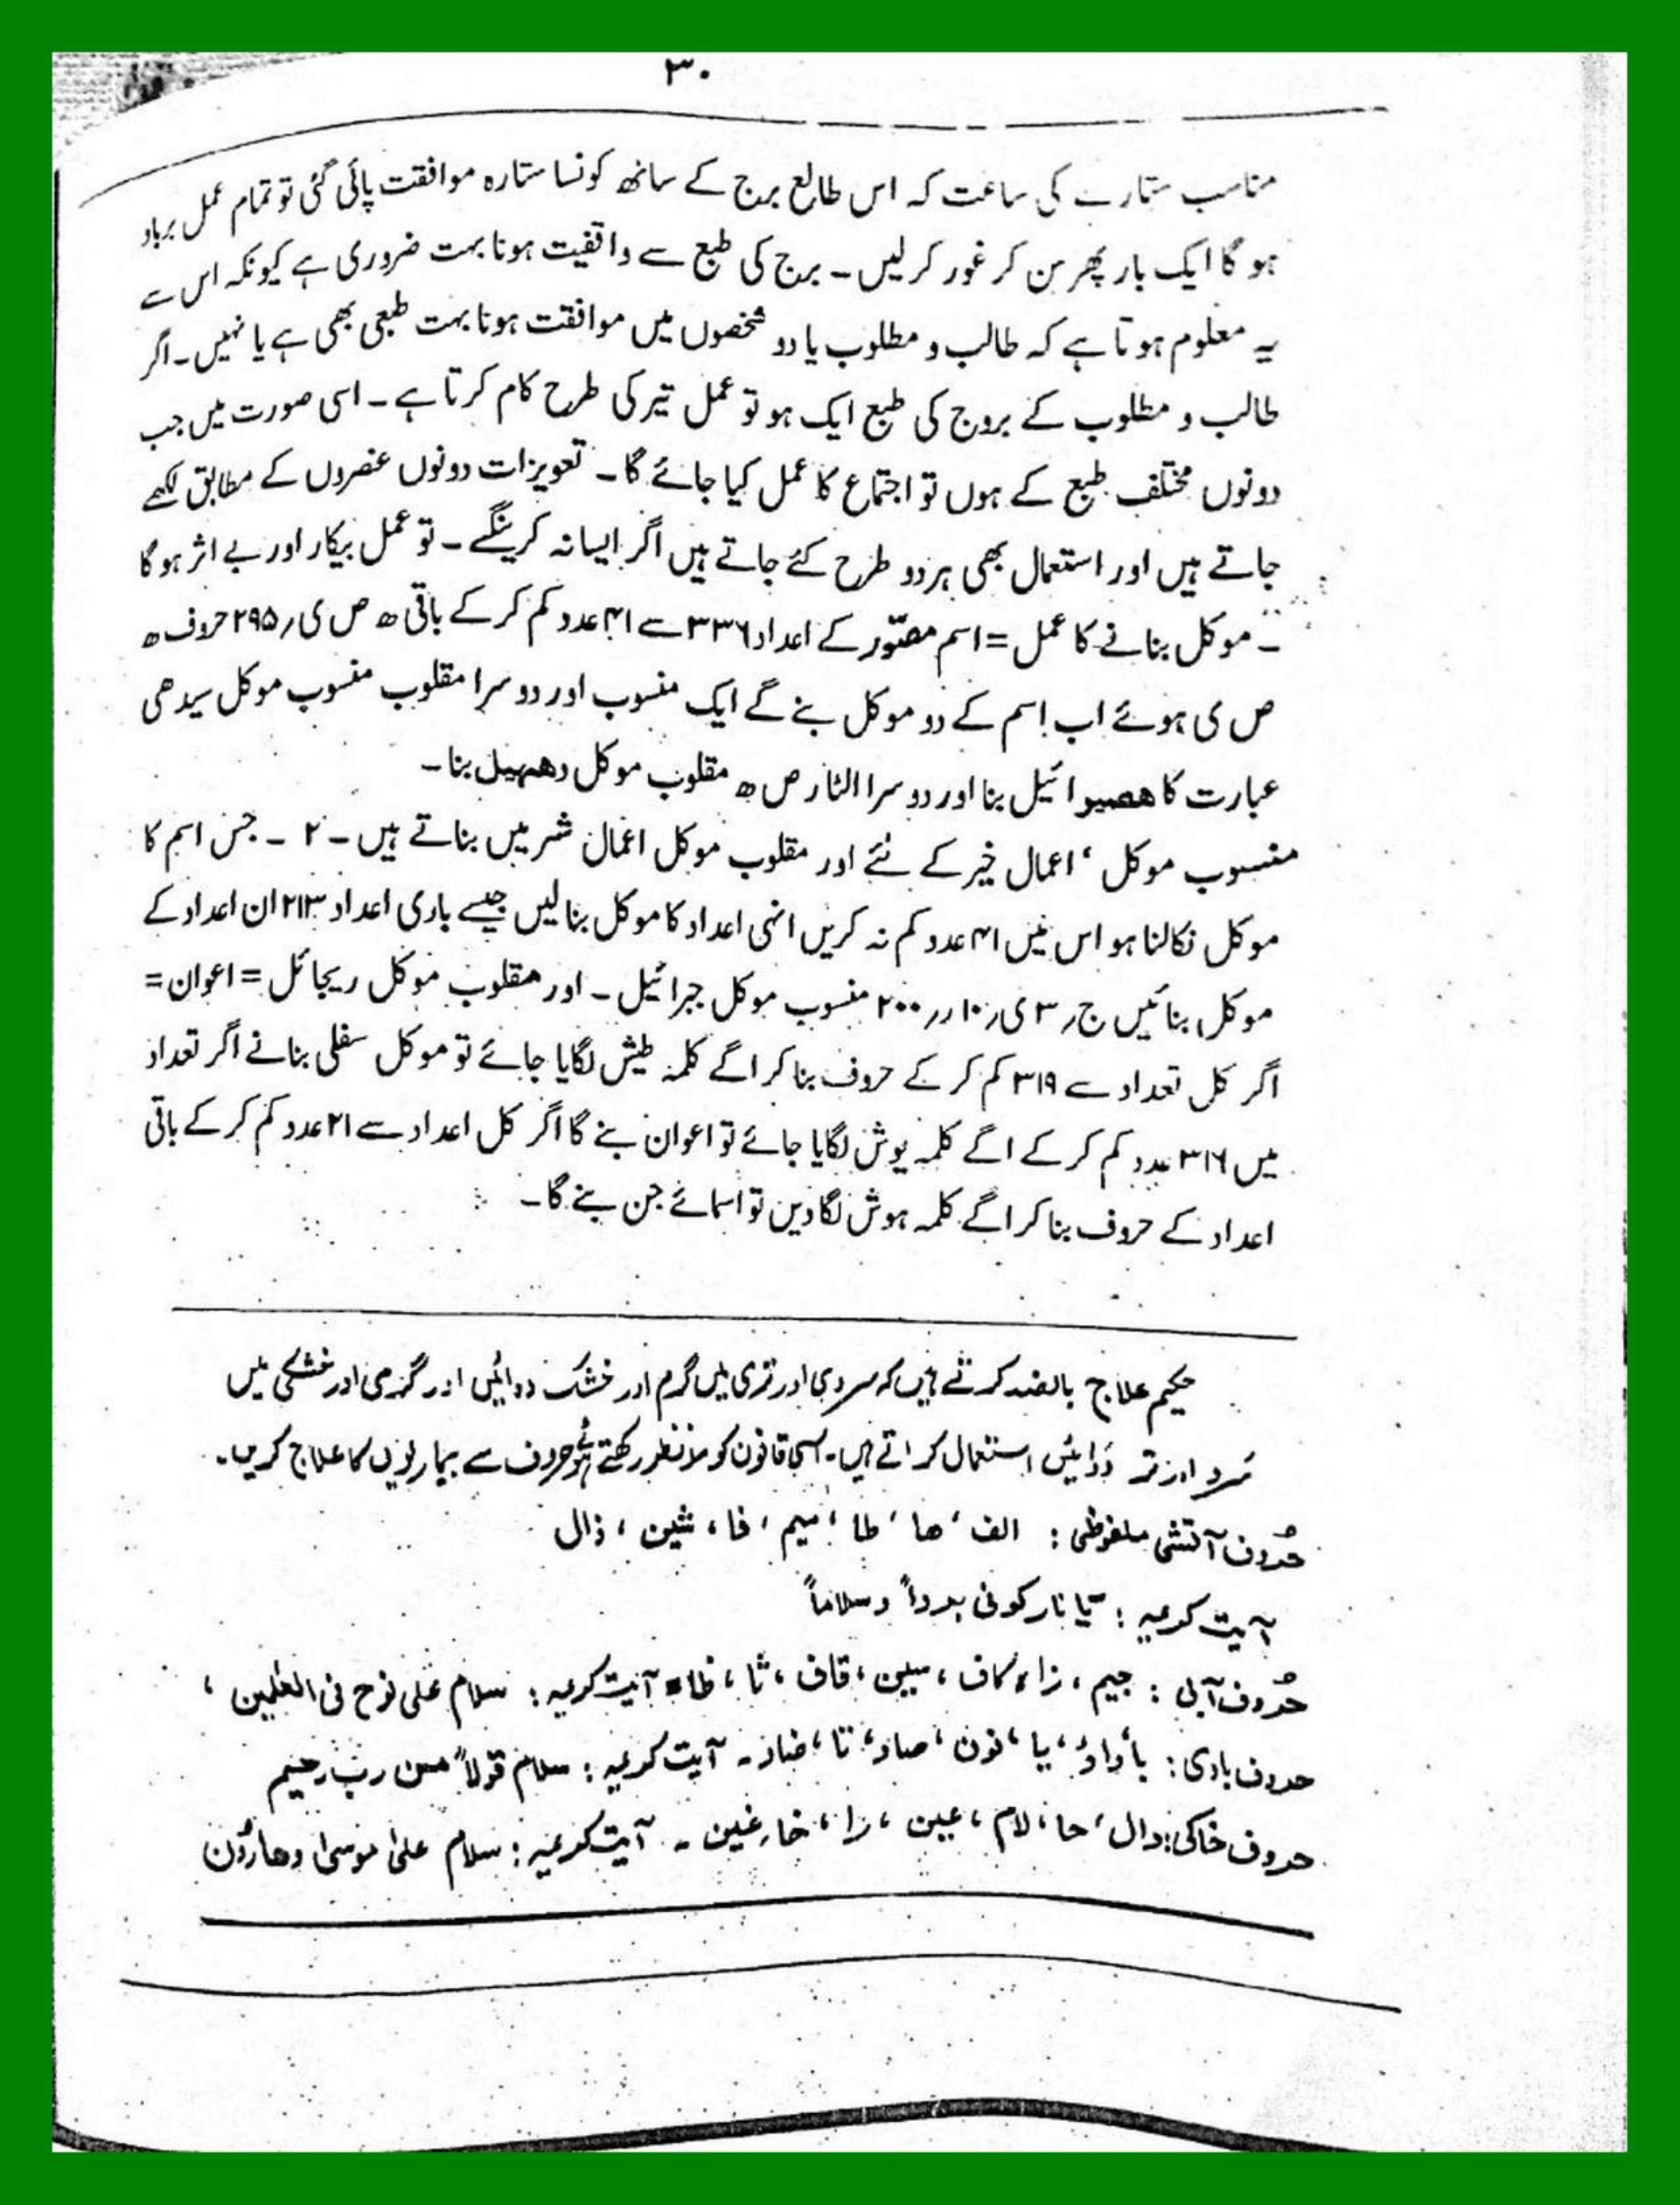 ۳۰
مناسب ستارے کی ساعت کہ اس طالع برج کے ساتھ کونسا ستارہ موافقت پائی گئی تو تمام عمل برباد
ہو گا ایک بار پھر سن کر غور کرلیں ۔ برج کی طبع سے واقفیت ہونا بہت ضروری ہے کیونکہ اس سے
یہ معلوم ہوتا ہے کہ طالب و مطلوب یا دو شخصوں میں موافقت ہونا بہت طبعی بھی ہے یا نہیں ۔ اگر
طالب و مطلوب کے بروج کی طبع ایک ہو تو عمل تیر کی طرح کام کرتا ہے ۔ اسی صورت میں جب
دونوں مختلف طبع کے ہوں تو اجتماع کا عمل کیا جائے گا ۔ تعویزات دونوں عنصروں کے مطابق لکھے
جاتے ہیں اور استعمال بھی ہر دو طرح کئے جاتے ہیں اگر ایسا نہ کرینگے ۔ تو عمل بیکار اور بے اثر ہو گا
۔ موکل بنانے کا عمل = اسم مصوّر کے اعداد ۳۳۶ سے ۴۱ عدد کم کر کے باقی ھ ص ی ر ۲۹۵ حروف ھ
ص ی ہوئے اب اسم کے دو موکل بنے گے ایک منسوب اور دوسرا مقلوب منسوب موکل سیدھی
عبارت کا ھصیرائیل بنا اور دوسرا الثار ص ھ مقلوب موکل بنا ۔
منسوب موکل ، اعمال خیر کے لئے اور مقلوب موکل اعمال شر میں بناتے ہیں ۔ ۲ ۔ جس اسم کا
موکل نکالنا ہو اس میں ۴۱ عدد کم نہ کریں انہی اعداد کا موکل بنا لیں جیسے باری اعداد ۲۱۳ ان اعداد کے
موکل بنائیں ج ر ۳ ی ر ۱۰ ر ر ۲۰۰ منسوب موکل جبرائیل ۔ اور مقلوب موکل ریجائل = اعوان =
اگر کل تعداد سے ۳۱۹ کم کر کے حروف بنا کر اگے کلمہ طیش لگایا جائے تو موکل سفلی بنانے اگر تعداد
میں ۳۱۶ عدد کم کر کے اگے کلمہ یوش لگایا جائے تو اعوان بنے گا اگر کل اعداد سے ۲۱ عدد کم کر کے باقی
اعداد کے حروف بنا کر اگے کلمہ ہوش لگا دیں تو اسمائے جن بنے گا ۔
حکیم علاج بالضد کرتے ہیں کہ سردی اور تری میں گرم اور خشک دوائیں اور گرمی اور خشکی میں
سرد اور تر دوائیں استعمال کراتے ہیں ۔ اسی قانون کو مدنظر رکھتے ہوئے حروف سے بیماریوں کا علاج کریں ۔
حروف آتشی ملفوظی : الف ، ھا ، طا ، میم ، فا ، شین ، ذال
آیت کریمہ : یا نار کونی بردا ً وسلاماً
حروف آبی : جیم ، زا ، کاف ، سین ، قاف ، ثا ، ظا ۔ آیت کریمہ : سلام علی نوح فی العٰلمین ،
حروف بادی : با ، واؤ ، یا ، نون ، صاد ، تا ، ضاد ۔ آیت کریمہ : سلام قولاً من رب رحیم
حروف خاکی : دال ، حا ، لام ، عین ، را ، خا ، غین ۔ آیت کریمہ : سلام علیٰ موسیٰ وھارون